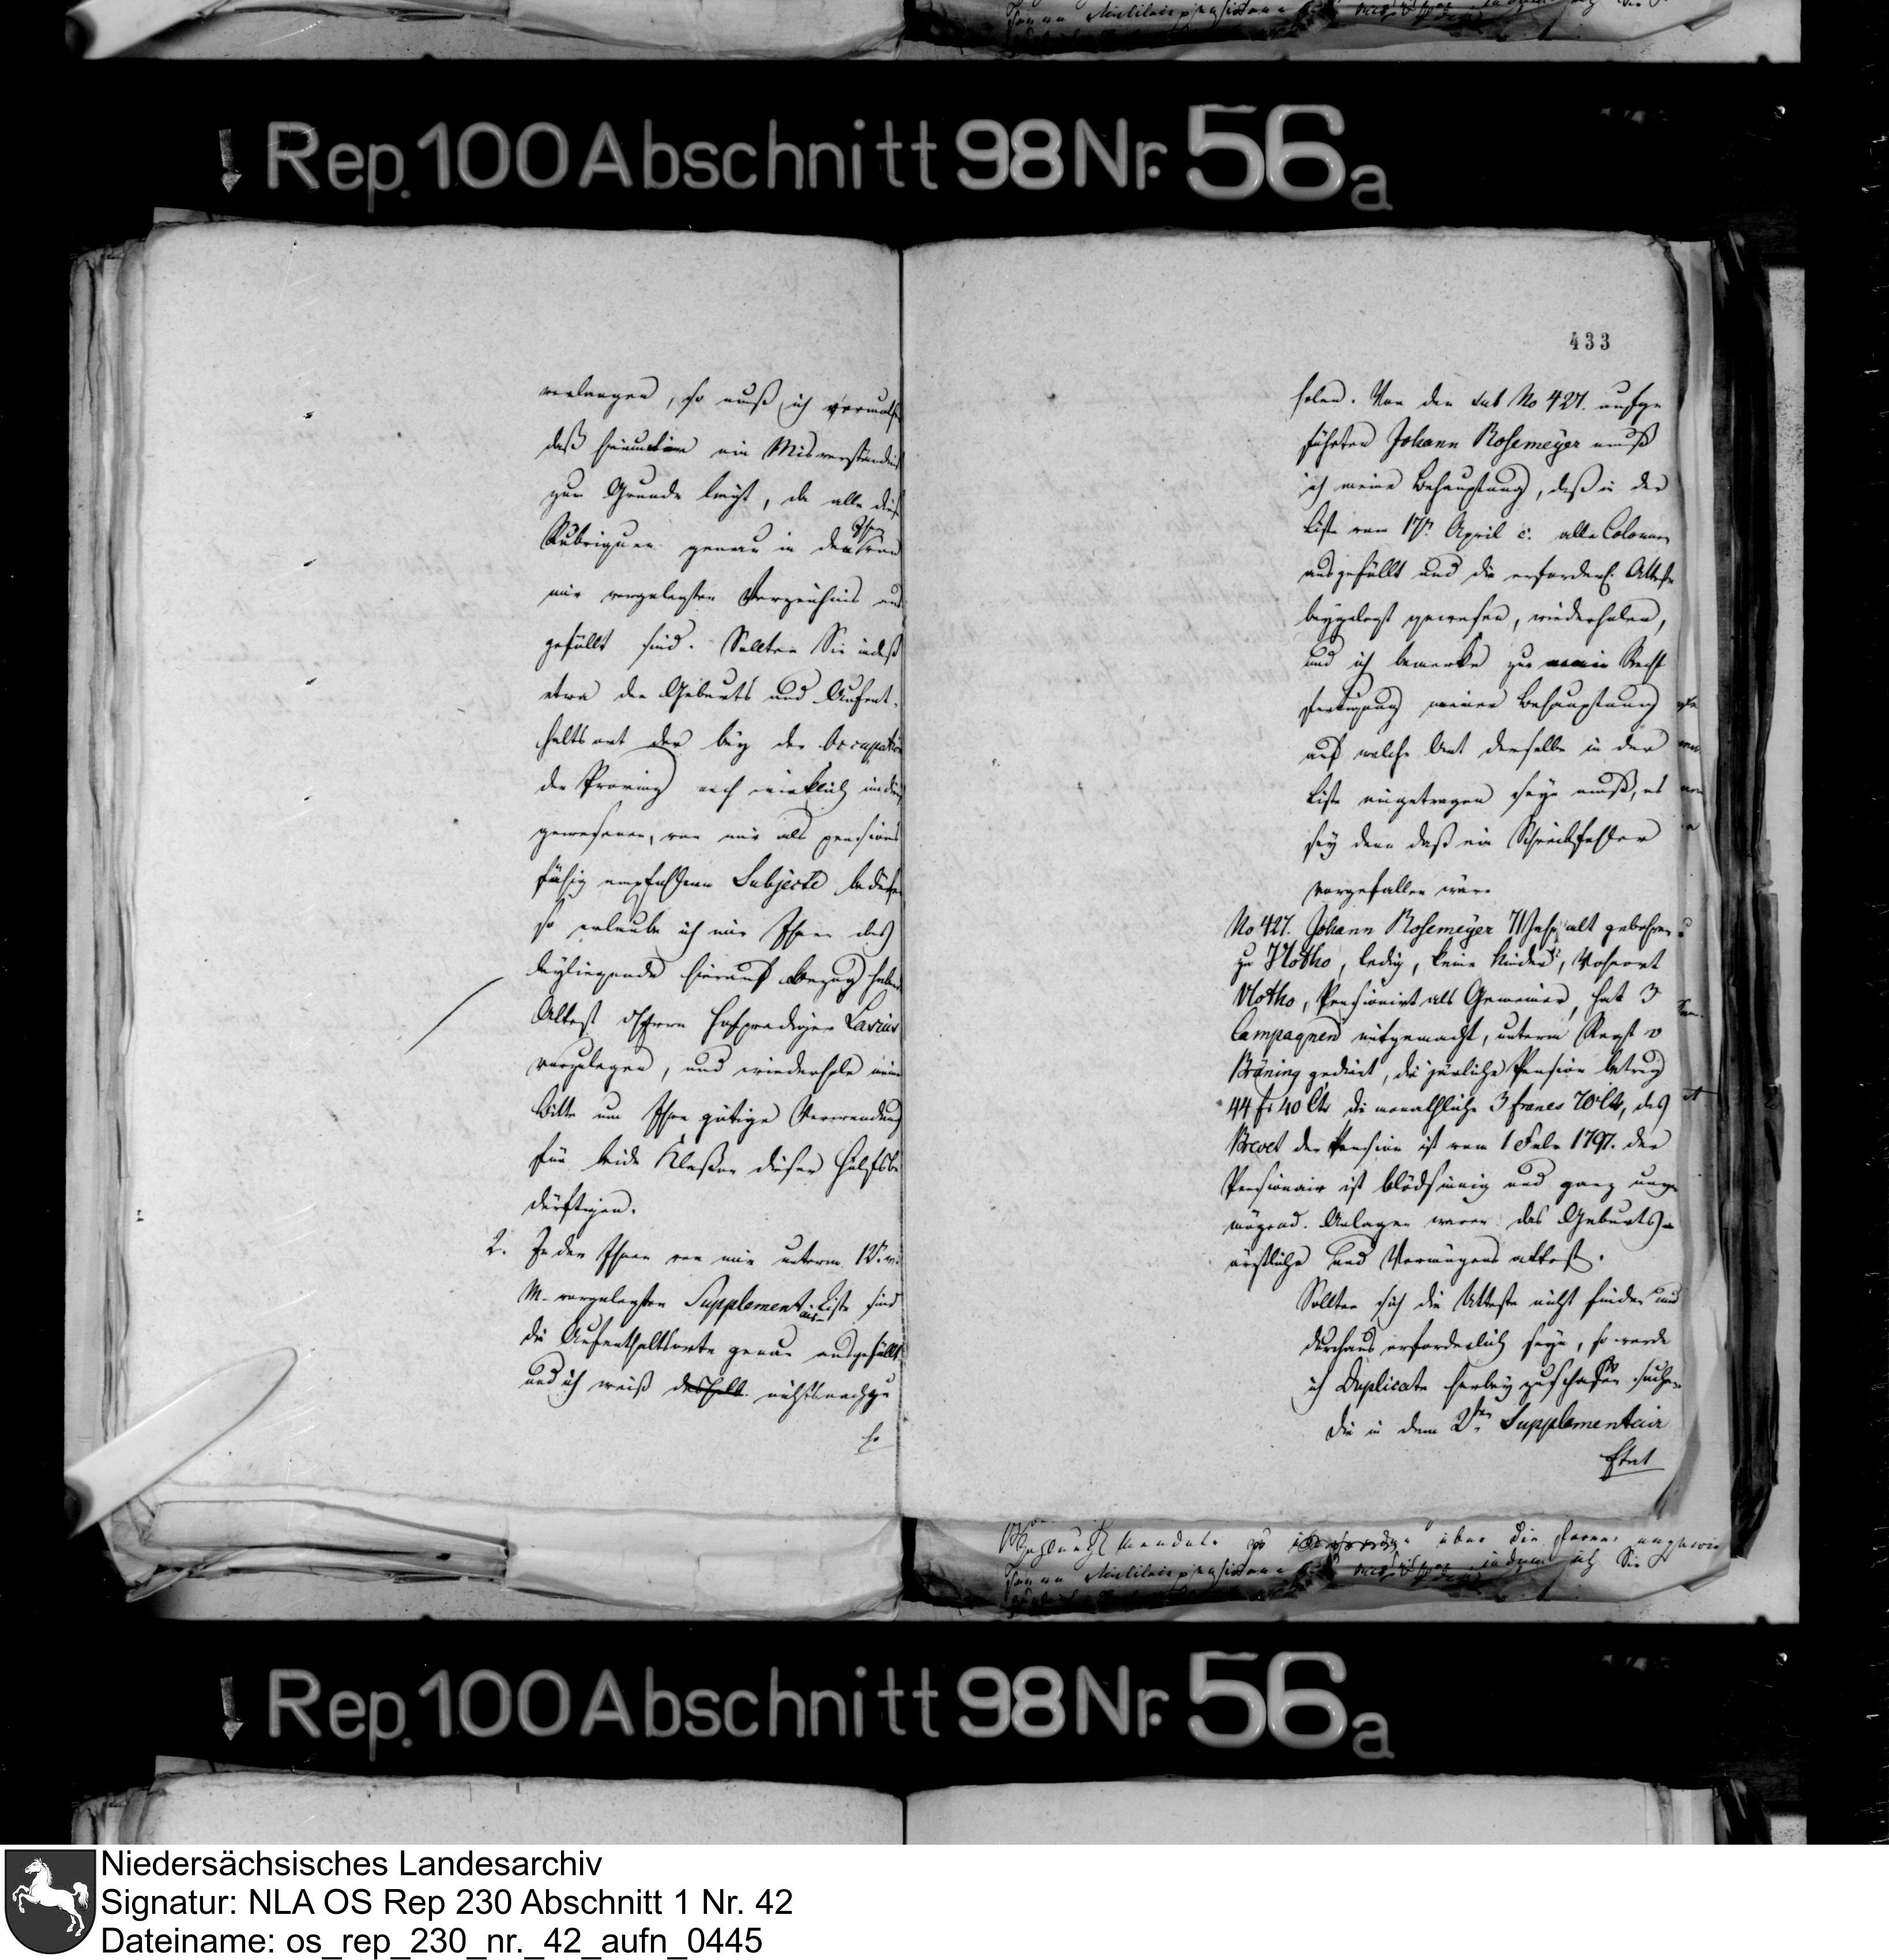 Rep. 100 Abschnitt 98 Nr. 56a
verlangen, so muß ich vermuth
daß hierunter ein Misverständniß
zum Grunde liegt, da alle diese
Rubriquen genau in den Ihnen von
mir vorgelegten Verzeichniß aus
gefüllt sind. Sollten Sie indeß
etwa den Geburts und Aufent-
haltsort der bey der Occupation
der Provinz noch wirklich im
gewesenen, von mir als pensions
fähig empfohlenen Subjecte bedürfen
so erlaube ich mir Ihnen das
beyliegende hierauf Bezug habende
Attest Herrn Hofprediger
vorzulegen, und wiederhole meine
Bitte um Ihre gütige Verwendung
für beide Klaßen dieser Hülfsbe
dürftigen.
2. In der Ihnen von mir unterm 12t. v.
M. vorgelegten Supplementair Liste sind
die Aufenthaltsorte genau ausgefüllt
und ich weiß deshalb nichts nachzu
ho
433
holen. Von den sub No 427. aufge
führten Johann Rosemeyer muß
ich meine Behauptung, daß in der
Liste vom 17t. April c. alle Colonnen
ausgefüllt und die erforderl. Atteste
beygelegt gewesen, wiederholen,
und ich bemerke zur Recht
fertigung meiner Behauptung
auf welche Art derselbe in der
Liste eingetragen seyn muß, es
sey denn daß ein Schreibfehler
vorgefallen wäre.
No 427. Johann Rosemeyer 71 Jahr alt gebohren
zu Vlotho, ledig, keine Kinder, Wohnort
Vlotho, Pensionirt als Gemeiner, hat 3
Campagnen mitgemacht, unterm Regt v
Brüning gedient, die jährliche Pension betrug
44 fr 40 Cts die monathliche 3 francs 70 Cts, das
Brevet der Pension ist vom 1 Febr 1797. der
Pensionair ist blödsinnig und ganz unver
mögend. Anlagen waren das Geburts-
ärztliche und Vermögens attest.
Sollten sich die Atteste nicht finden und
durchaus erforderlich seyn, so werde
ich Duplicate herbey zuschaffen suchen.
Die in dem 2ten Supplementair
Etat
Rep. 100 Abschnitt 98 Nr. 56a
Niedersächsisches Landesarchiv
Signatur: NLA OS Rep 230 Abschnitt 1 Nr. 42
Dateiname: os_rep_230_nr._42_aufn_0445